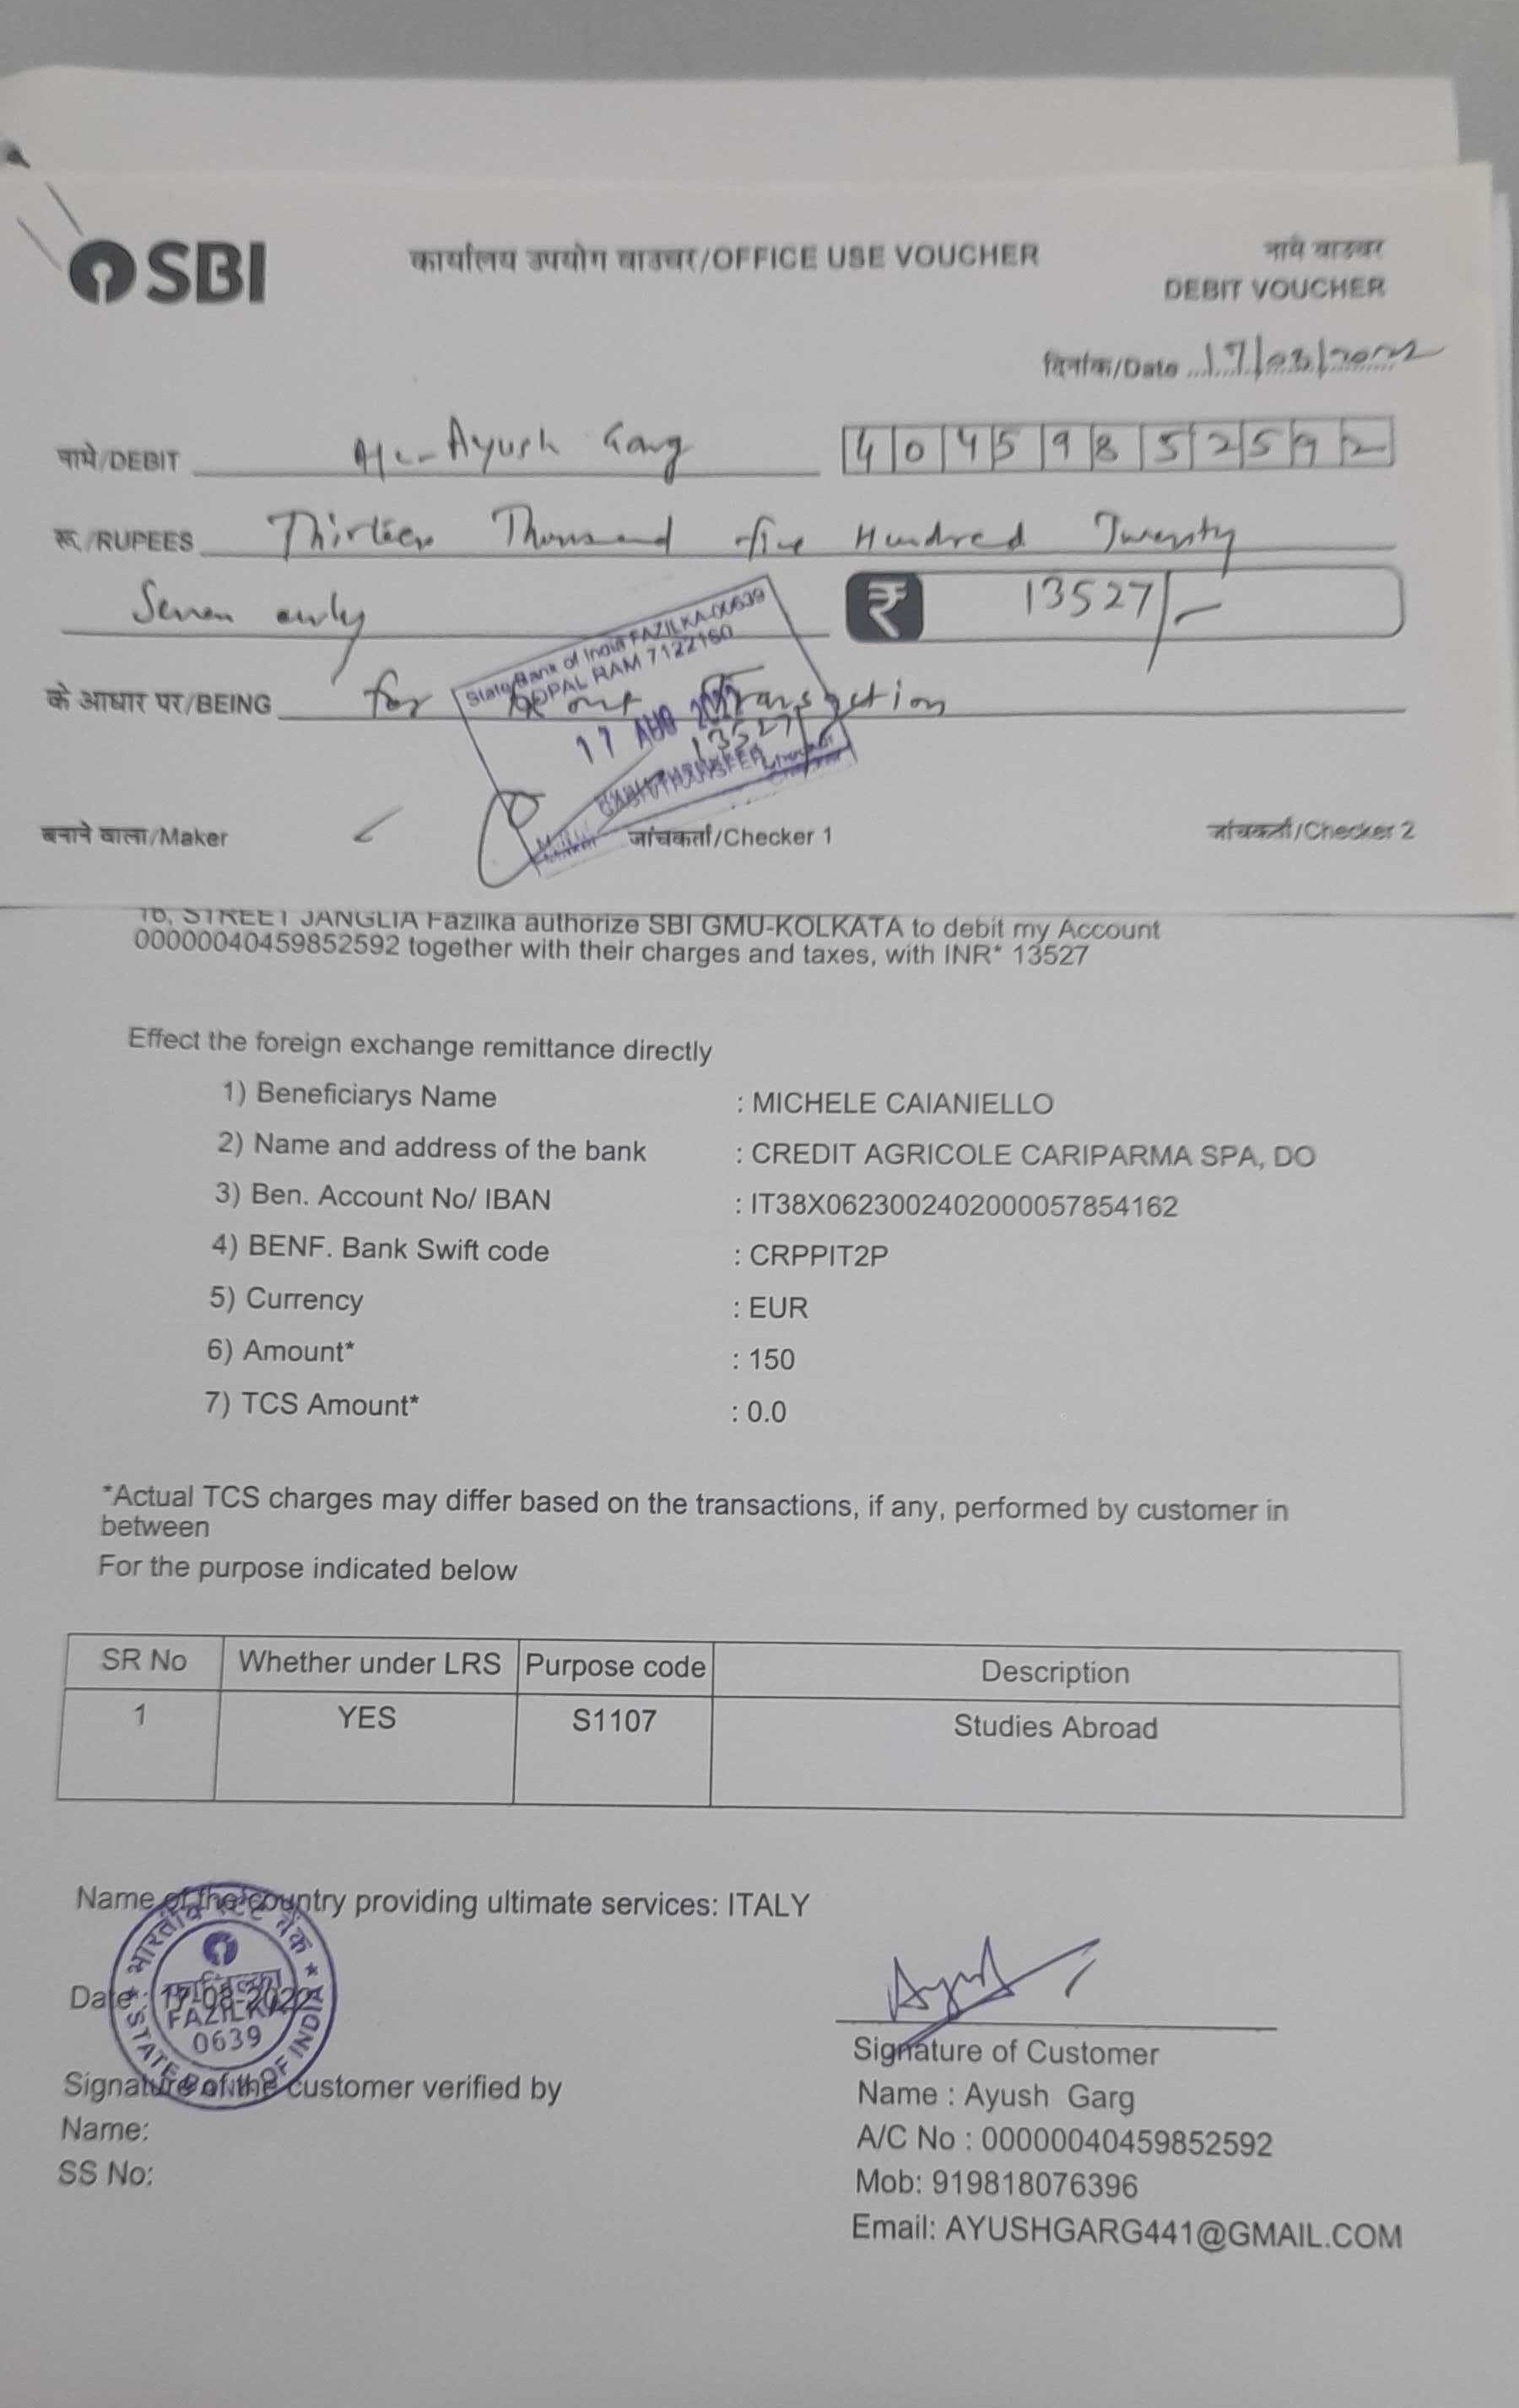 SBI
कार्यालय उपयोग वाउचर/OFFICE USE VOUCHER
नामे वाउचर
DEBIT VOUCHER
दिनांक/Date 17/08/2022
नामे/DEBIT A/c- Ayush Garg 40459852592
रू./RUPEES Thirteen Thousand five Hundred Twenty
Seven only ₹ 13527/-
State Bank of India FAZILKA-00639
GOPAL RAM 7122160
के आधार पर/BEING for out Transaction
17 AUG 2022
13527/-
CASH/TRANSFER
बनाने वाला/Maker जांचकर्ता/Checker 1 जांचकर्ता/Checker 2
16, STREET JANGLIA Fazilka authorize SBI GMU-KOLKATA to debit my Account
00000040459852592 together with their charges and taxes, with INR* 13527
Effect the foreign exchange remittance directly
1) Beneficiarys Name : MICHELE CAIANIELLO
2) Name and address of the bank : CREDIT AGRICOLE CARIPARMA SPA, DO
3) Ben. Account No/ IBAN : IT38X0623002402000057854162
4) BENF. Bank Swift code : CRPPIT2P
5) Currency : EUR
6) Amount* : 150
7) TCS Amount* : 0.0
*Actual TCS charges may differ based on the transactions, if any, performed by customer in
between
For the purpose indicated below
SR No Whether under LRS Purpose code Description
1 YES S1107 Studies Abroad
Name of the country providing ultimate services: ITALY
Date : 17-08-2022
भारतीय स्टेट बैंक
फाजिल्का
FAZILKA
0639
STATE BANK OF INDIA
Signature of Customer
Signature of the customer verified by
Name : Ayush Garg
Name:
A/C No : 00000040459852592
SS No:
Mob: 919818076396
Email: AYUSHGARG441@GMAIL.COM